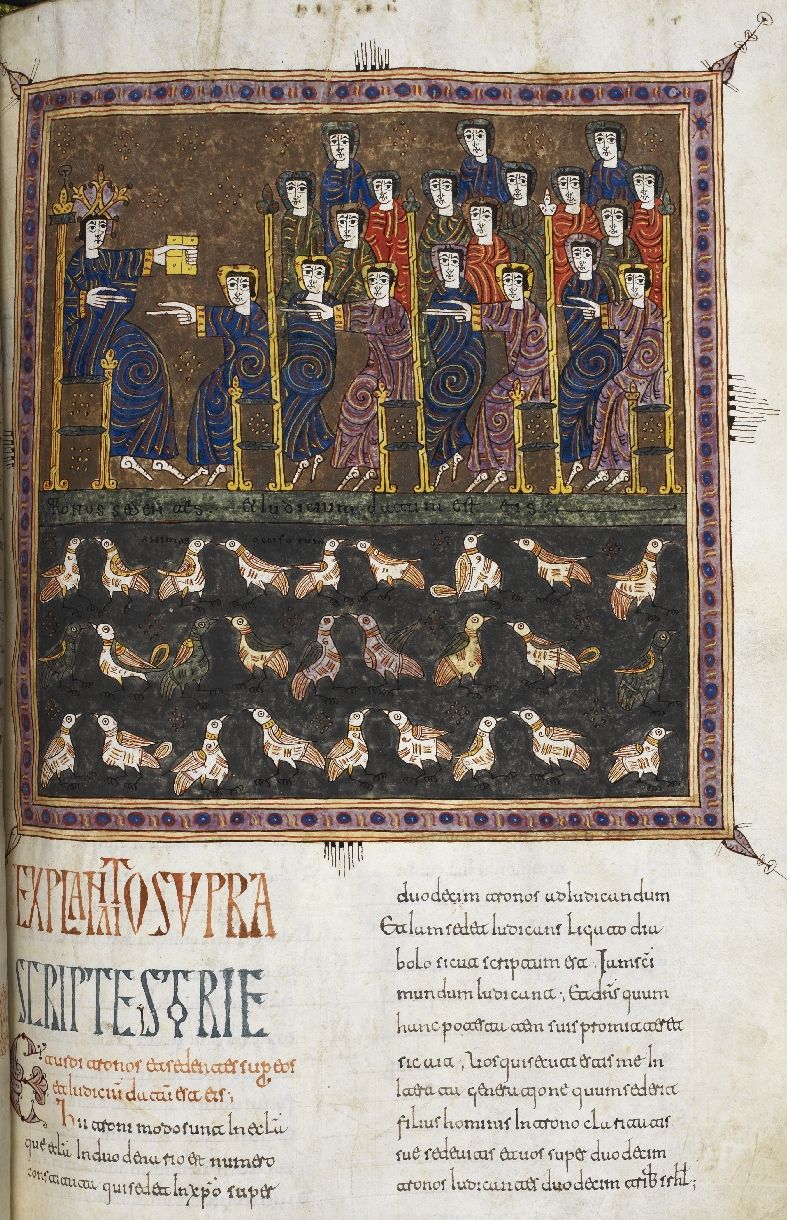 tronos sedentes. et iudicium datum est eis
animas occisorum
EXPLANATIO SVPRA
SCRIPTE ISTORIE
Et uidi tronos et sedentes super eos
et iudiciu datu est eis;
Hii troni modo sunt In eclia
que eclia In duodenario est numero
constituta qui sedet In xpo super
duodecim tronos ad iudicandum
Et iam sedet iudicans ligato dia
bolo sicut scriptum est. Iam sci
mundum iudicant; Et dns quum
hanc potestatem suis promitteret
sic ait; Uos qui secuti estis me In
Iterata generatione quum sederit
filius hominis In trono claritatis
sue sedevitis et uos super duodecim
tronos iudicantes duodecim trib srhl;